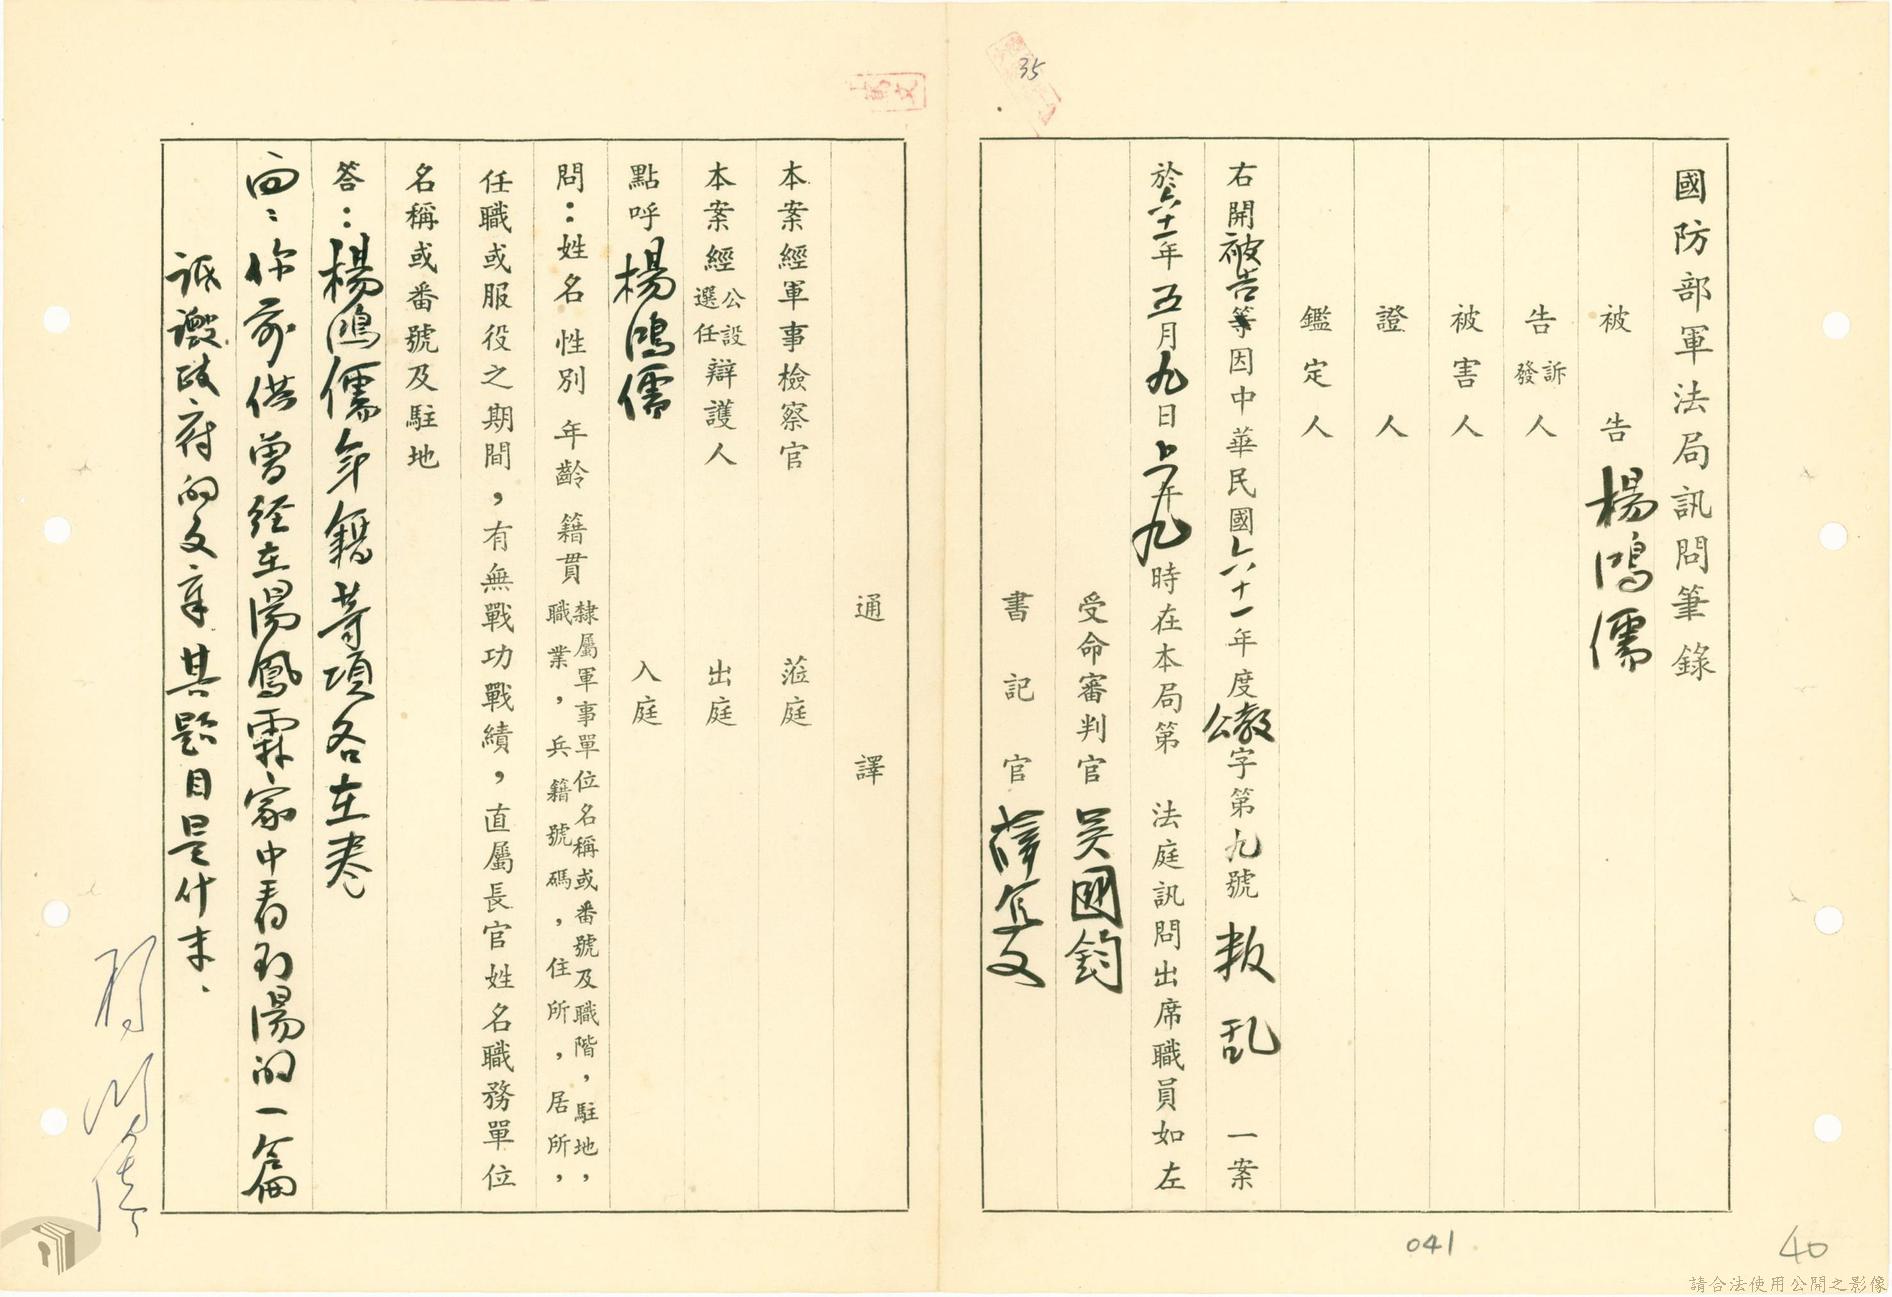 35
國防部軍法局訊問筆錄
被告 楊鴻儒
告訴發人
被害人
證人
鑑定人
右開被告等因中華民國六十一年度公教字第九號 叛乱 一案
於六十一年五月九日上午九時在本局第 法庭訊問出席職員如左
受命審判官 吴國鈞
書記官
通譯
本案經軍事檢察官 蒞庭
本案經公設選任辯護人 出庭
點呼楊鴻儒 入庭
問：姓名 性別 年齡 籍貫 隸屬軍事單位名稱或番號及職階，駐地，職業，兵籍號碼，住所，居所，
任職或服役之期間，有無戰功戰績，直屬長官姓名職務單位
名稱或番號及駐地
答：楊鴻儒年籍等項各在卷
问：你前供曾经在湯鳳霖家中看到湯的一篇
詆譭政府的文章其题目是什末、
楊鴻儒
041
40
請合法使用公開之影像